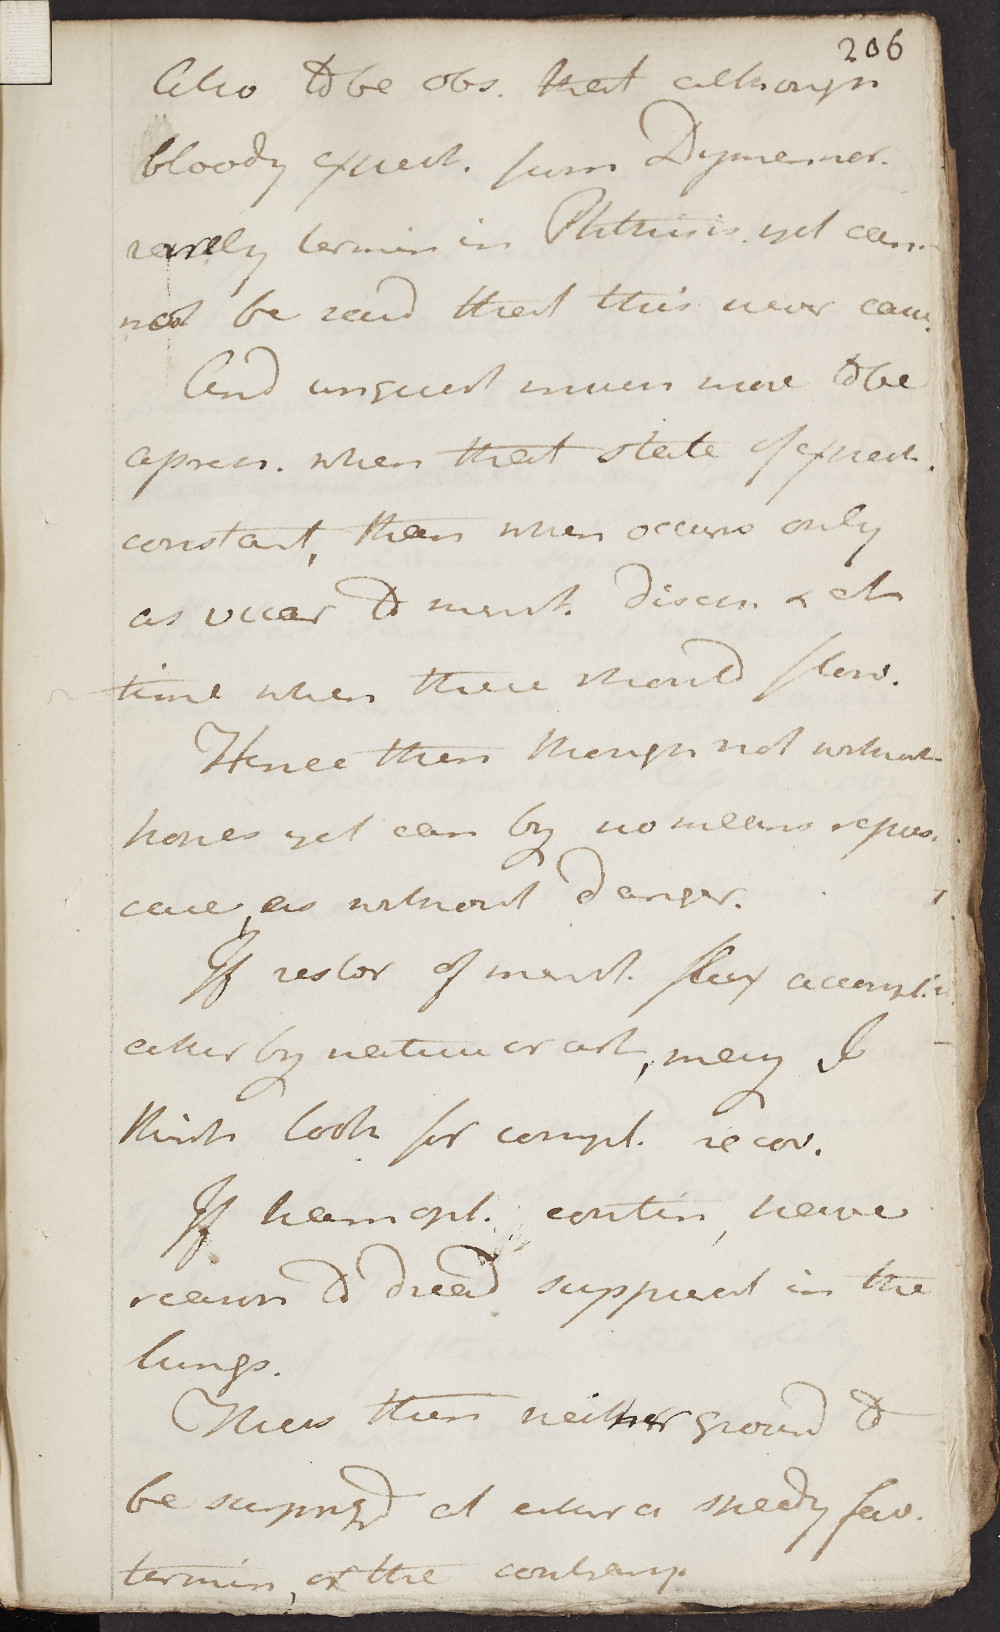 206
Also to be obs. that although
bloody expect. from Dysmenor.
rarely termin in Phthisis yet can
not be said that this never case.
And unquest much more to be
apreh. when that state of expect.
constant, than when occurs only
as vicar to menst. disch. & at
time when these should flow.
Hence then though not without
hopes yet can by no means repres.
case, as without danger.
If restor of menst. flux accompl.
either by nature or art, may I
think look for compl. recov.
If hæmopt. contin, have
reason to dread suppurat in the
lungs.
Thus then neither ground to
be surprizd at either a speedy fav.
termin, or the contrary